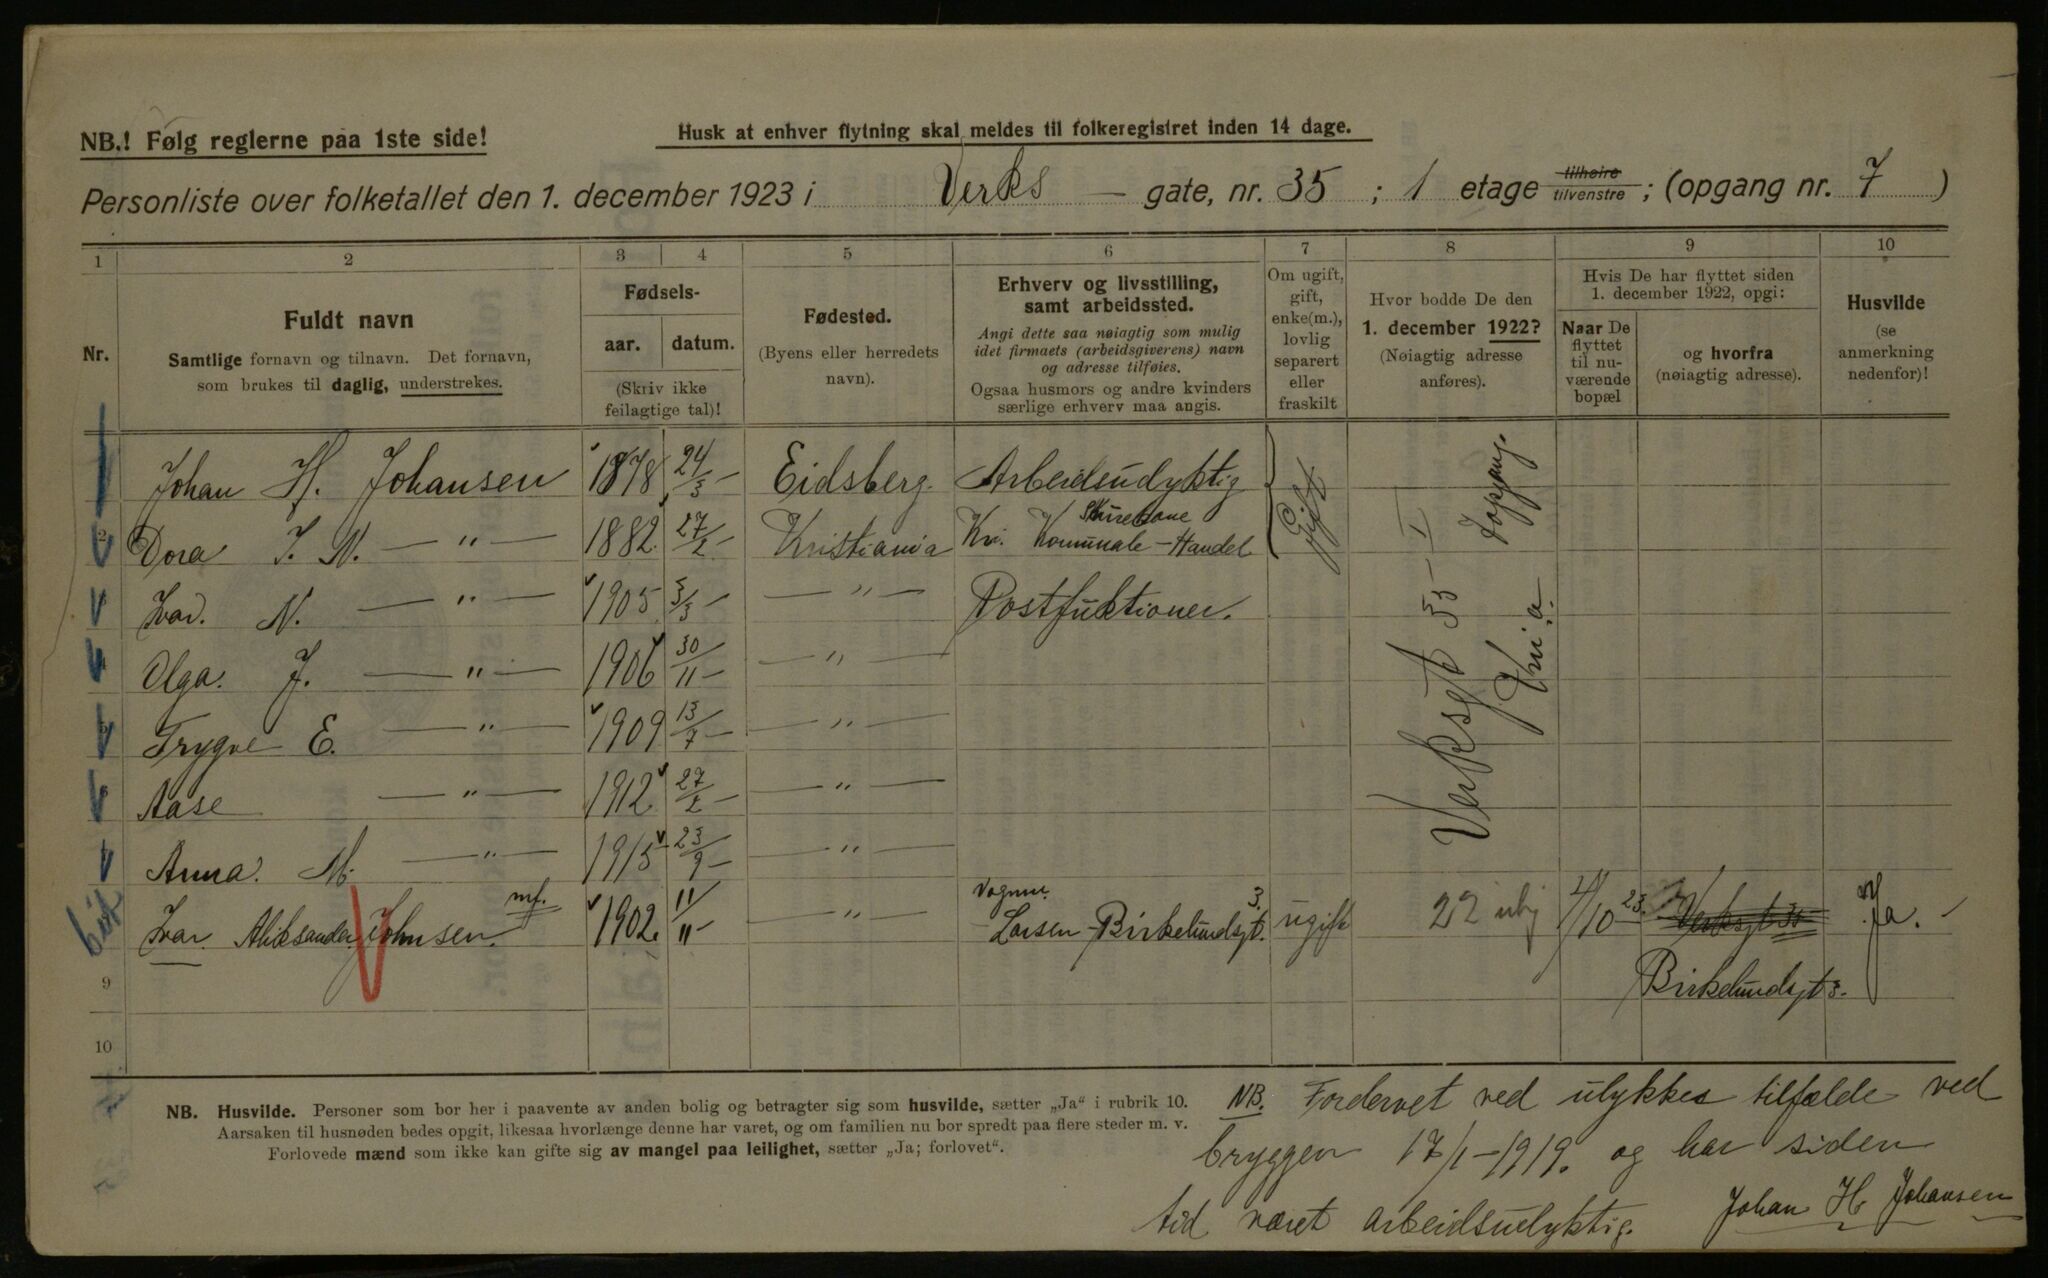 NB.! Følg reglerne paa 1ste side!
Husk at enhver flytning skal meldes til folkeregistret inden 14 dage.
Personliste over folketallet den 1. december 1923 i Verks — gate, nr. 35 ; 1 etage tilhøire tilvenstre ; (opgang nr. 7 )
1 2 3 4 5 6 7 8 9 10
Nr.
Fuldt navn
Samtlige fornavn og tilnavn. Det fornavn,
som brukes til daglig, understrekes.
Fødsels-
aar. datum.
(Skriv ikke
feilagtige tal)!
Fødested.
(Byens eller herredets
navn).
Erhverv og livsstilling,
samt arbeidssted.
Angi dette saa nøiagtig som mulig
idet firmaets (arbeidsgiverens) navn
og adresse tilføies.
Ogsaa husmors og andre kvinders
særlige erhverv maa angis.
Om ugift,
gift,
enke(m.),
lovlig
separert
eller
fraskilt
Hvor bodde De den
1. december 1922?
(Nøiagtig adresse
anføres).
Hvis De har flyttet siden
1. december 1922, opgi:
Naar De
flyttet
til nu-
værende
bopæl
og hvorfra
(nøiagtig adresse).
Husvilde
(se
anmerkning
nedenfor)!
Johan H. Johansen 1878 24/3 — Eidsberg. Arbeidsudyktig Gift Verksgt 35 — I Kria.
2 Dora J. N. — " — 1882 27/2 — Kristiania Kr. Komunale — Handel
Ivar. N. — " — 1905 3/3 — — " — Postfuktioner.
Olga. J. — " — 1906 30/11 — — " —
Trygve E. — " — 1909 13/7 — — " —
Aase — " — 1912 27/2 — — " —
Anna. M. — " — 1915 23/9 — — " —
Ivar Aleksander Johnsen. mf. 1902. 11/11 — " — Vognm. Larsen — Birkelundsgt. 3. ugift 22 4/10 23. Verksgt 35 Ja.
9 Birkelundsgt 3.
10
NB. Husvilde. Personer som bor her i paavente av anden bolig og betragter sig som husvilde, sætter „Ja“ i rubrik 10.
Aarsaken til husnøden bedes opgit, likesaa hvorlænge denne har varet, og om familien nu bor spredt paa flere steder m. v.
Forlovede mænd som ikke kan gifte sig av mangel paa leilighet, sætter „Ja; forlovet“.
NB. Fordervet ved ulykkes tilfælde ved
bryggen 17/1 — 1919. og har siden
tid været arbeidsudyktig.
Johan H Johansen